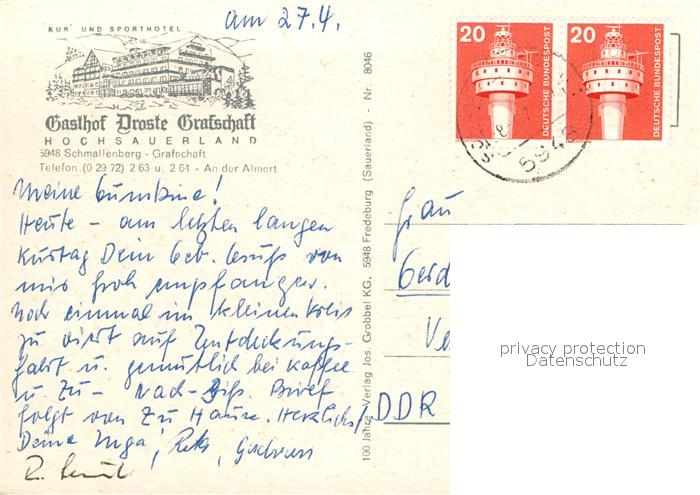 am 27.4.
KUR UND SPORTHOTEL
Gasthof Droste Grafschaft
HOCHSAUERLAND
5948 Schmallenberg - Grafschaft
Telefon (0 29 72) 2 63 u. 2 64 - An der Almert
Meine
Heute - am letzten langen
Kurtag Dein Geb. Gruß von
mir froh empfangen.
Noch einmal im kleinen Kreis
zu viert auf Entdeckungs-
fahrt u. gemütlich bei Kaffee
u. Brief
folgt von Zu Hause. Herzlichst
Deine Inga,
100 Jahre Verlag Jos. Grobbel KG, 5948 Fredeburg (Sauerland) - Nr. 8046
20
DEUTSCHE BUNDESPOST
20
DEUTSCHE BUNDESPOST
5948
Frau
Gerd
Ve
DDR
privacy protection
Datenschutz